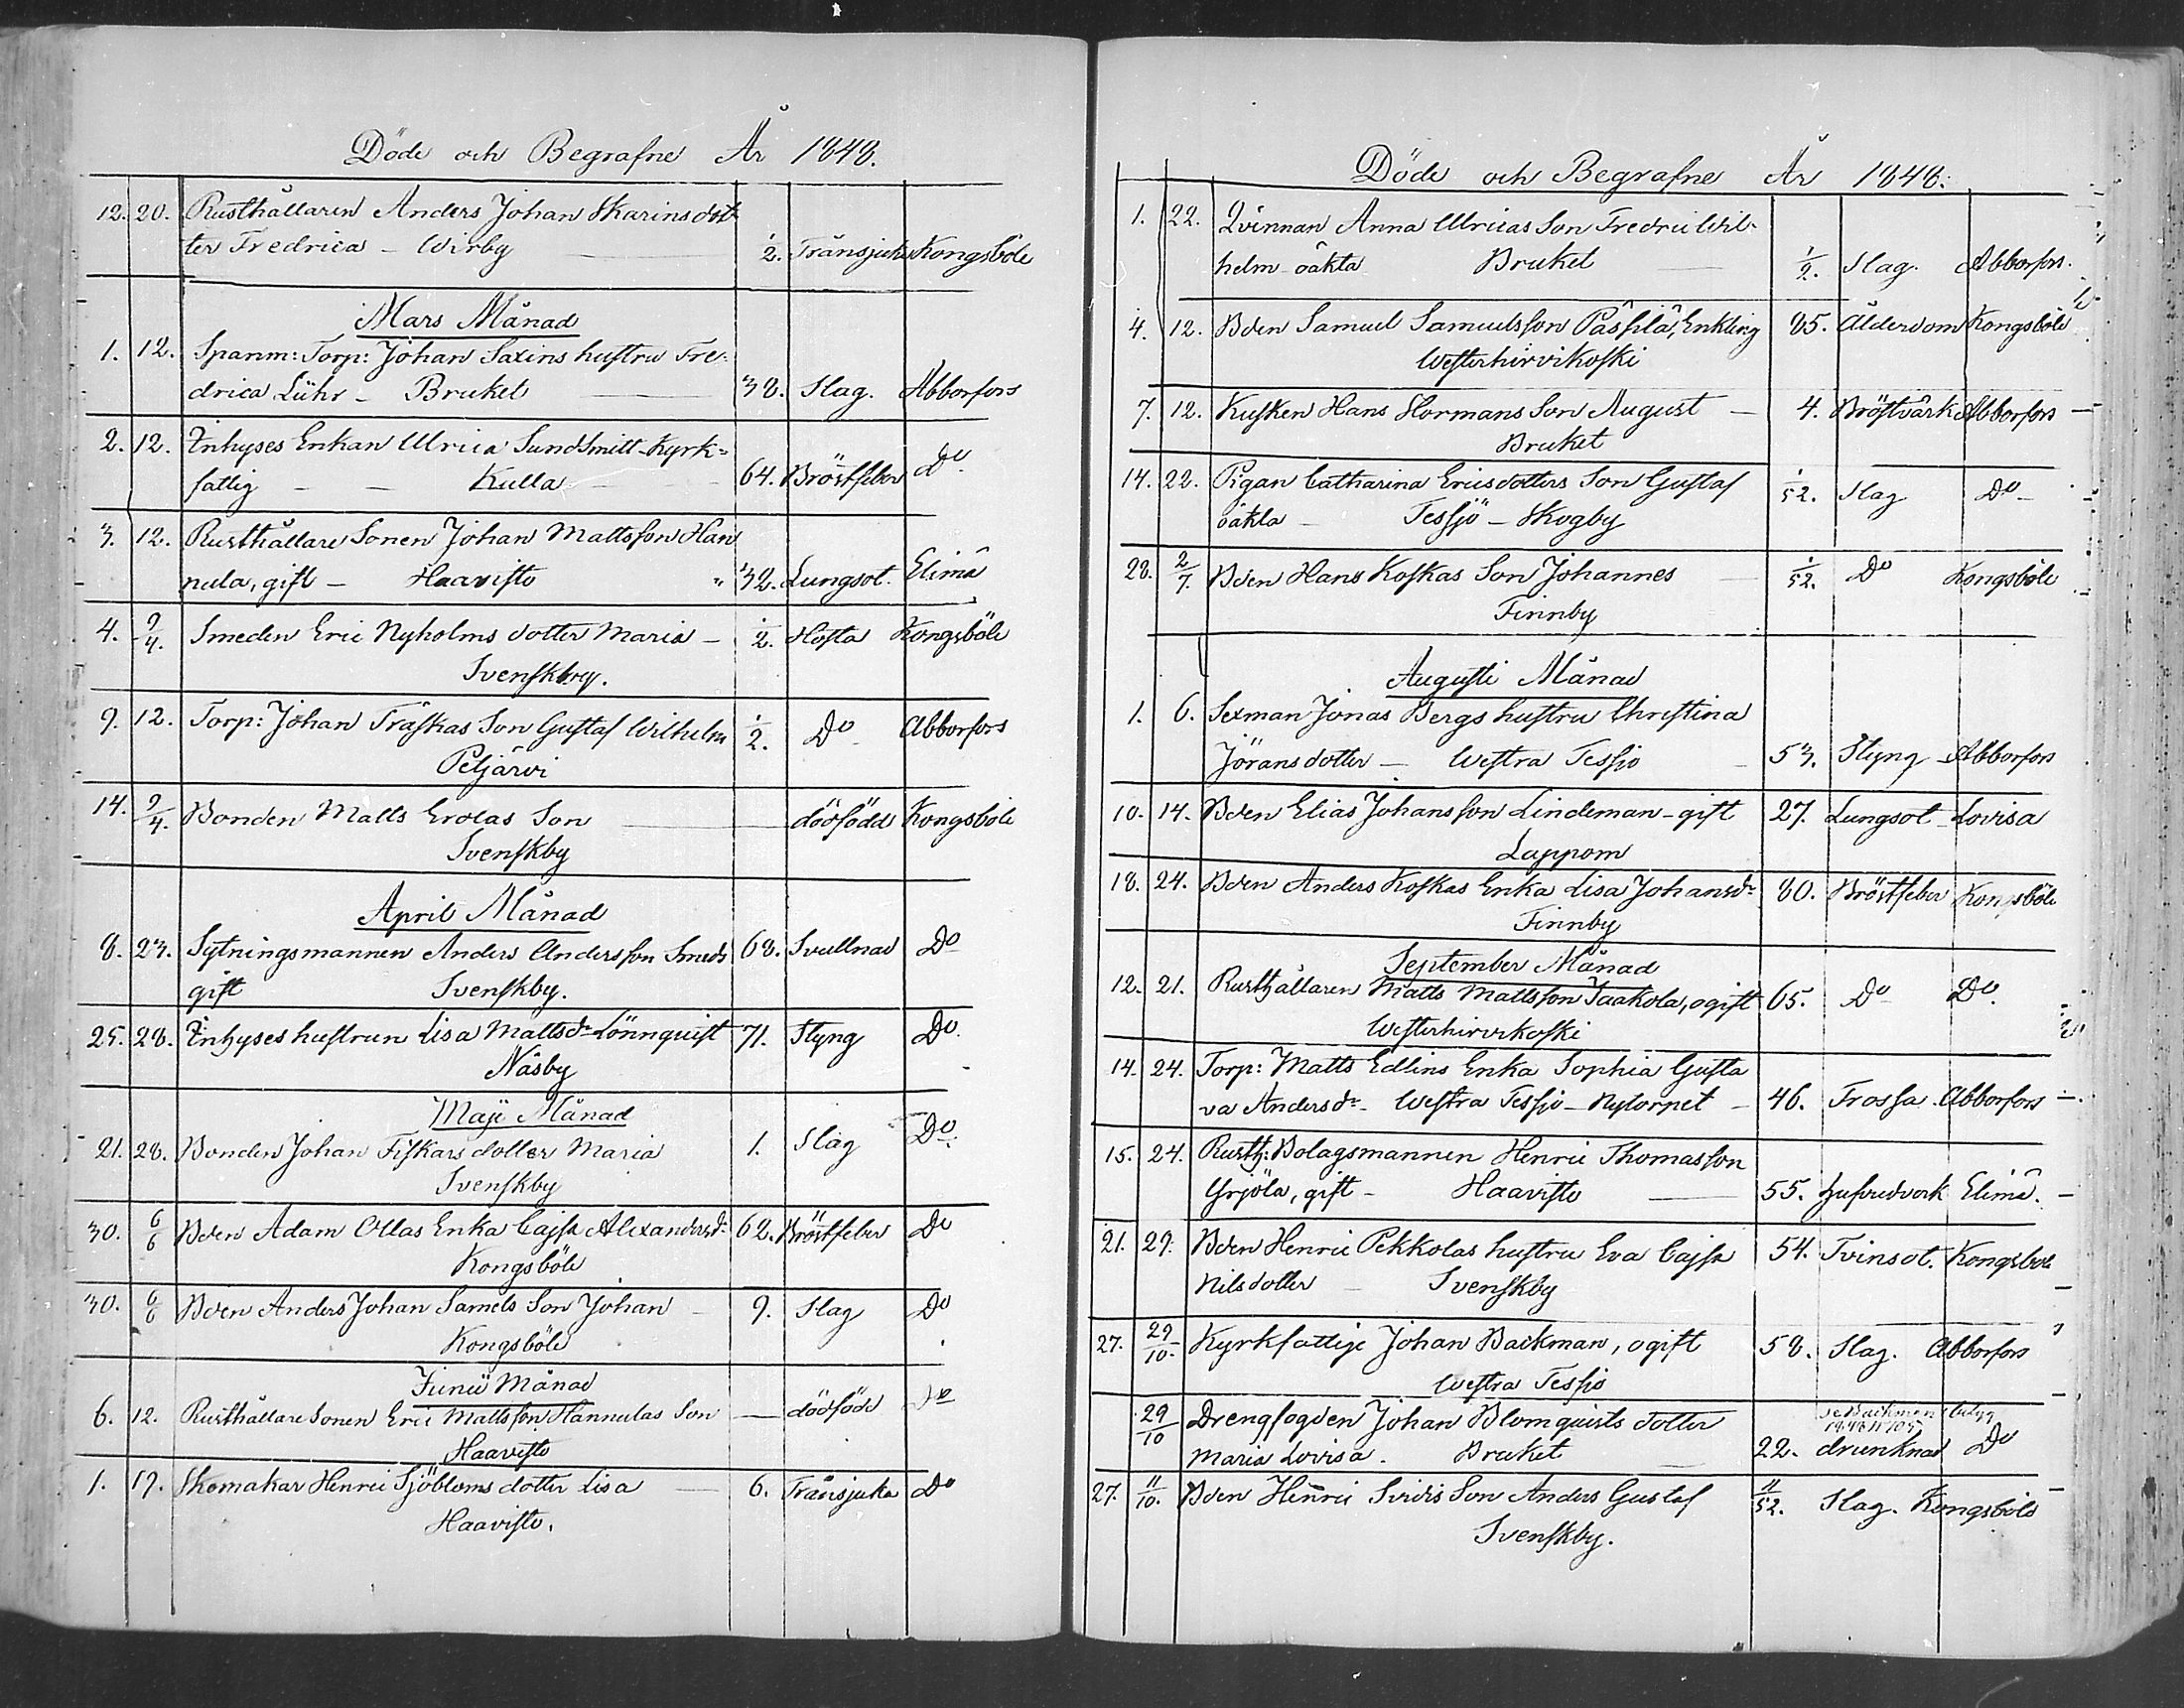 Döde och Begrafne År 1848.
12. 20. Rusthållaren Anders Johan Skarins dot-
ter Fredrica - Wirby 1/2. Trånsjuka Kongsböle
Mars Månad
1. 12. Spanm: Torp: Johan Saxins hustru Fre-
drica Lühr - Bruket 38. Slag. Abborfors
2. 12. Inhyses Enkan Ulrica Sundsmitt - Kyrk-
fattig - - Kulla 64. Bröstfeber Do
3. 12. Rusthållare Sonen Johan Mattsson Han
nula, gift - Haavisto 32. Lungsot. Elimä
4. 9/4. Smeden Eric Nyholms dotter Maria - 1/2. Hosta Kongsböle
Svenskby.
9. 12. Torp: Johan Träskas Son Gustaf Wilhelm 1/2. Do Abborfors
Petjärvi
14. 9/4. Bonden Matts Erolas Son dödfödd Kongsböle
Svenskby
April Månad
8. 23. Sytningsmannen Anders Andersson Smeds 68. Svullnad Do
gift Svenskby.
25. 28. Inhyses hustrun Lisa Mattsdr Lönnquist 71. Styng Do
Näsby
Maji Månad
21. 28. Bonden Johan Fiskars dotter Maria 1. Slag Do
Svenskby
30. 6/6 Bden Adam Ollas Enka Cajsa Alexandersdr 62. Bröstfeber Do
Kongsböle
30. 6/6 Bden Anders Johan Samels Son Johan 9. Slag Do
Kongsböle
Junii Månad
6. 12. Rusthållare Sonen Eric Mattsson Hannulas Son - dödfödd Do
Haavisto
1. 17. Skomakar Henric Sjöbloms dotter Lisa 6. Trånsjuka Do
Haavisto.
Döde och Begrafne År 1848.
1. 22. Qvinnan Anna Ulricas Son Fredric Wil-
helm oäkta Bruket 1/2. Slag. Abborfors.
4. 12. Bden Samuel Samuelsson Pässilä, Enkling 85. Ålderdom Kongsböle
Westerhirvikoski
7. 12. Kusken Hans Hormans Son August - 4. Bröstvärk Abborfors
Bruket
14. 22. Pigan Catharina Ericsdotters Son Gustaf 1/52. Slag Do
oäkta - Tessjö - Skogby
28. 2/7. Bden Hans Koskas Son Johannes 1/52. Do Kongsböle
Finnby
Augusti Månad
1. 6. Sexman Jonas Bergs hustru Christina
Jöransdotter - Westra Tessjö 53. Styng Abborfors
10. 14. Bden Elias Johansson Lindeman - gift 27. Lungsot Lovisa
Lappom
18. 24. Bden Anders Koskas Enka Lisa Johansdr 80. Bröstfeber Kongsböle
Finnby
September Månad
12. 21. Rusthållaren Matts Mattsson Jaakola, ogift 65. Do Do
Westerhirvikoski
14. 24. Torp: Matts Edlins Enka Sophia Gusta
va Andersdr - Westra Tessjö - Nytorpet - 46. Frossa. Abborfors
15. 24. Rusth: Bolagsmannen Henric Thomasson
Yrjölä, gift - Haavisto 55. hufvudverk Elimä.
21. 29. Bden Henric Pekkolas hustru Eva Cajsa 54. Tvinsot. Kongsböle
Nilsdotter - Svenskby
27. 29/10. Kyrkfattige Johan Backman, ogift 58. Slag. Abborfors
Westra Tessjö
29/10 Drengfogden Johan Blomquists dotter
Maria Lovisa. Bruket 22. drunknad Do
27. 11/10. Bden Henric Sirdis Son Anders Gustaf 11/52. Slag. Kongsböle
Svenskby.